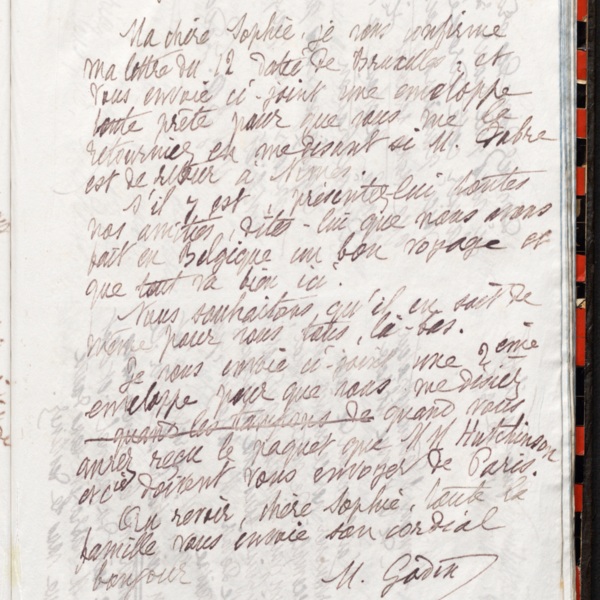 Ma chère Sophie, je vous confirme
ma lettre du 12 datée de Bruxelles et
vous envoie ci-joint une enveloppe
toute prête pour que vous me la
retourniez en me disant si M. Fabre
est de retour à Nîmes.
S'il y est, présentez lui toutes
nos amitiés, dites-lui que nous avons
fait en Belgique un bon voyage et
que tout va bien ici.
Nous souhaitons qu'il en soit de
même pour vous tous, là-bas.
Je vous envoie ci-joint une 2ème
enveloppe pour que vous me disiez
quand les quand vous
aurez reçu le paquet que MM Hutchinson
et Cie doivent vous envoyer de Paris.
Au revoir, chère Sophie, toute la
famille vous envoie son cordial
bonjour
M. Godin